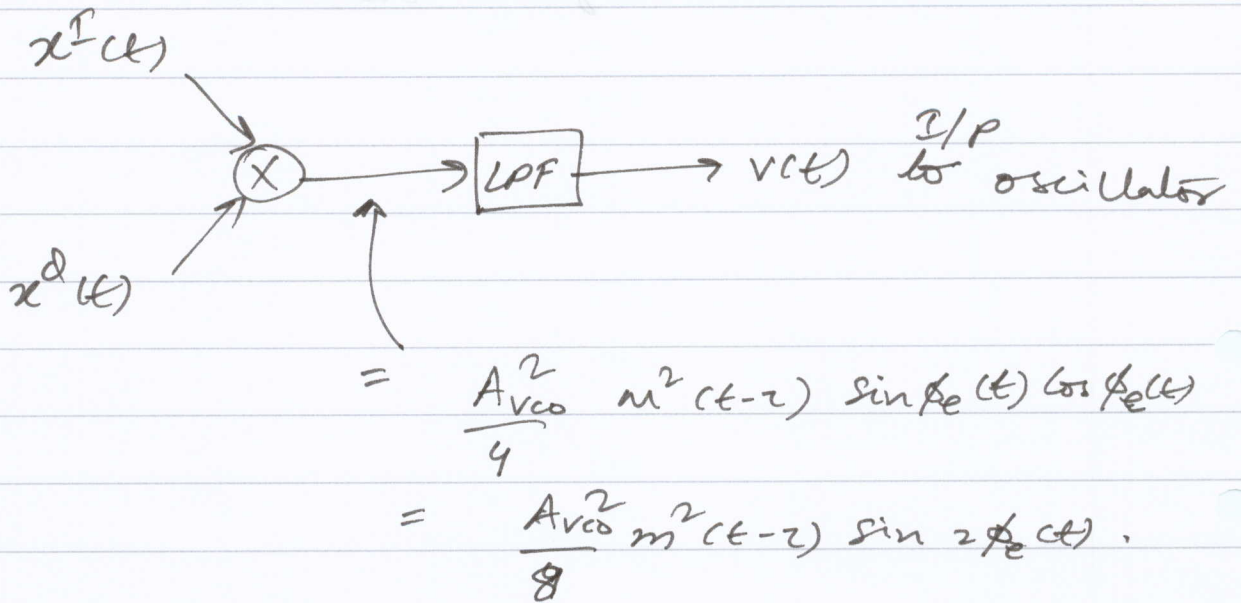 x^I(t)
X LPF v(t) I/P to oscillator
x^Q(t)
= A_vco^2/4 m^2(t-τ) sin ϕ_e(t) cos ϕ_e(t)
= A_vco^2/8 m^2(t-τ) sin 2ϕ_e(t).